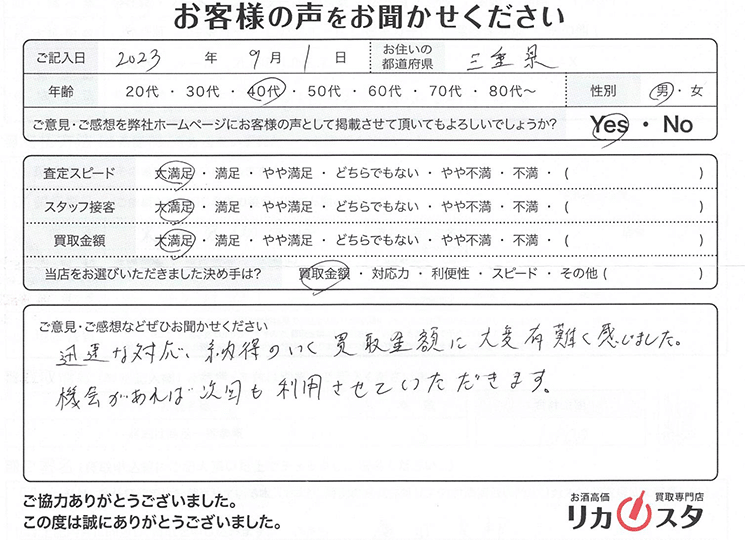 お客様の声をお聞かせください
ご記入日 2023 年 9 月 1 日 お住いの都道府県 三重県
年齢 20代 ・ 30代 ・ 40代 ・ 50代 ・ 60代 ・ 70代 ・ 80代～ 性別 男 ・ 女
ご意見・ご感想を弊社ホームページにお客様の声として掲載させて頂いてもよろしいでしょうか? Yes ・ No
査定スピード 大満足 ・ 満足 ・ やや満足 ・ どちらでもない ・ やや不満 ・ 不満 ・ ( )
スタッフ接客 大満足 ・ 満足 ・ やや満足 ・ どちらでもない ・ やや不満 ・ 不満 ・ ( )
買取金額 大満足 ・ 満足 ・ やや満足 ・ どちらでもない ・ やや不満 ・ 不満 ・ ( )
当店をお選びいただきました決め手は? 買取金額 ・ 対応力 ・ 利便性 ・ スピード ・ その他 ( )
ご意見・ご感想などぜひお聞かせください
迅速な対応、納得のいく買取金額に大変有難く感じました。
機会があれば次回も利用させていただきます。
ご協力ありがとうございました。
この度は誠にありがとうございました。
お酒高価 買取専門店
リカスタ